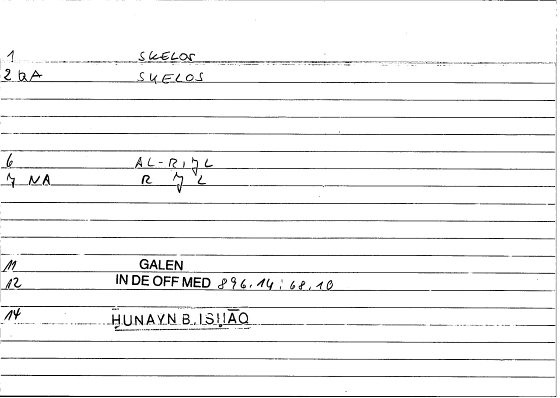 1 SKELOS
2 QA SKELOS
6 AL-RIJL
7 NA R J L
11 GALEN
12 IN DE OFF MED 896.14; 68.10
14 ḤUNAYN B. ISḤĀQ